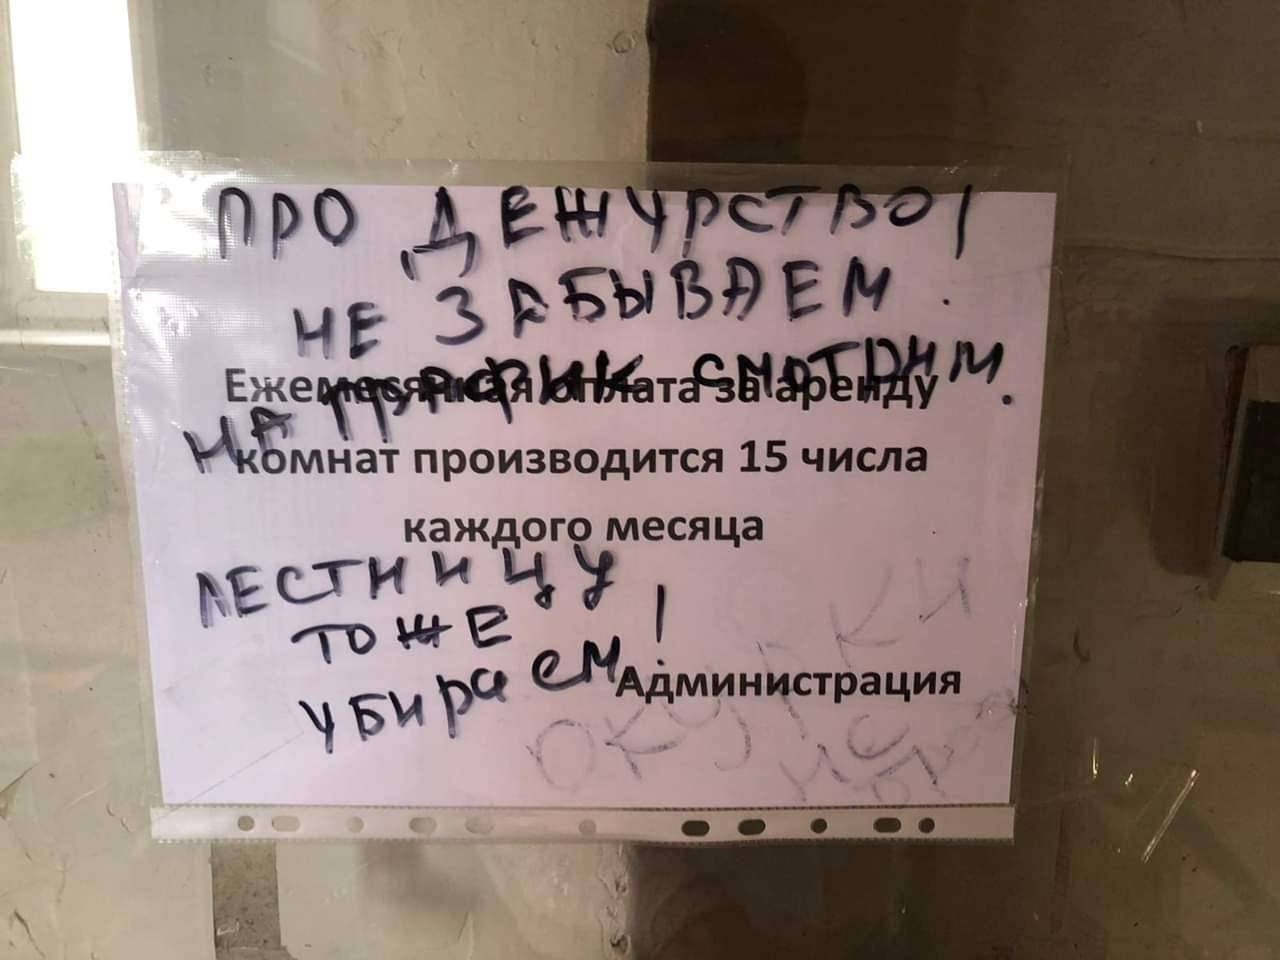 ПРО ДЕЖУРСТВО!
НЕ ЗАБЫВАЕМ.
НА ГРАФИК СМОТРИМ.
Ежемесячная оплата за аренду
комнат производится 15 числа
каждого месяца
ЛЕСТНИЦУ
ТОЖЕ
УБИРАЕМ!
Администрация
ОКУРКИ
НЕ